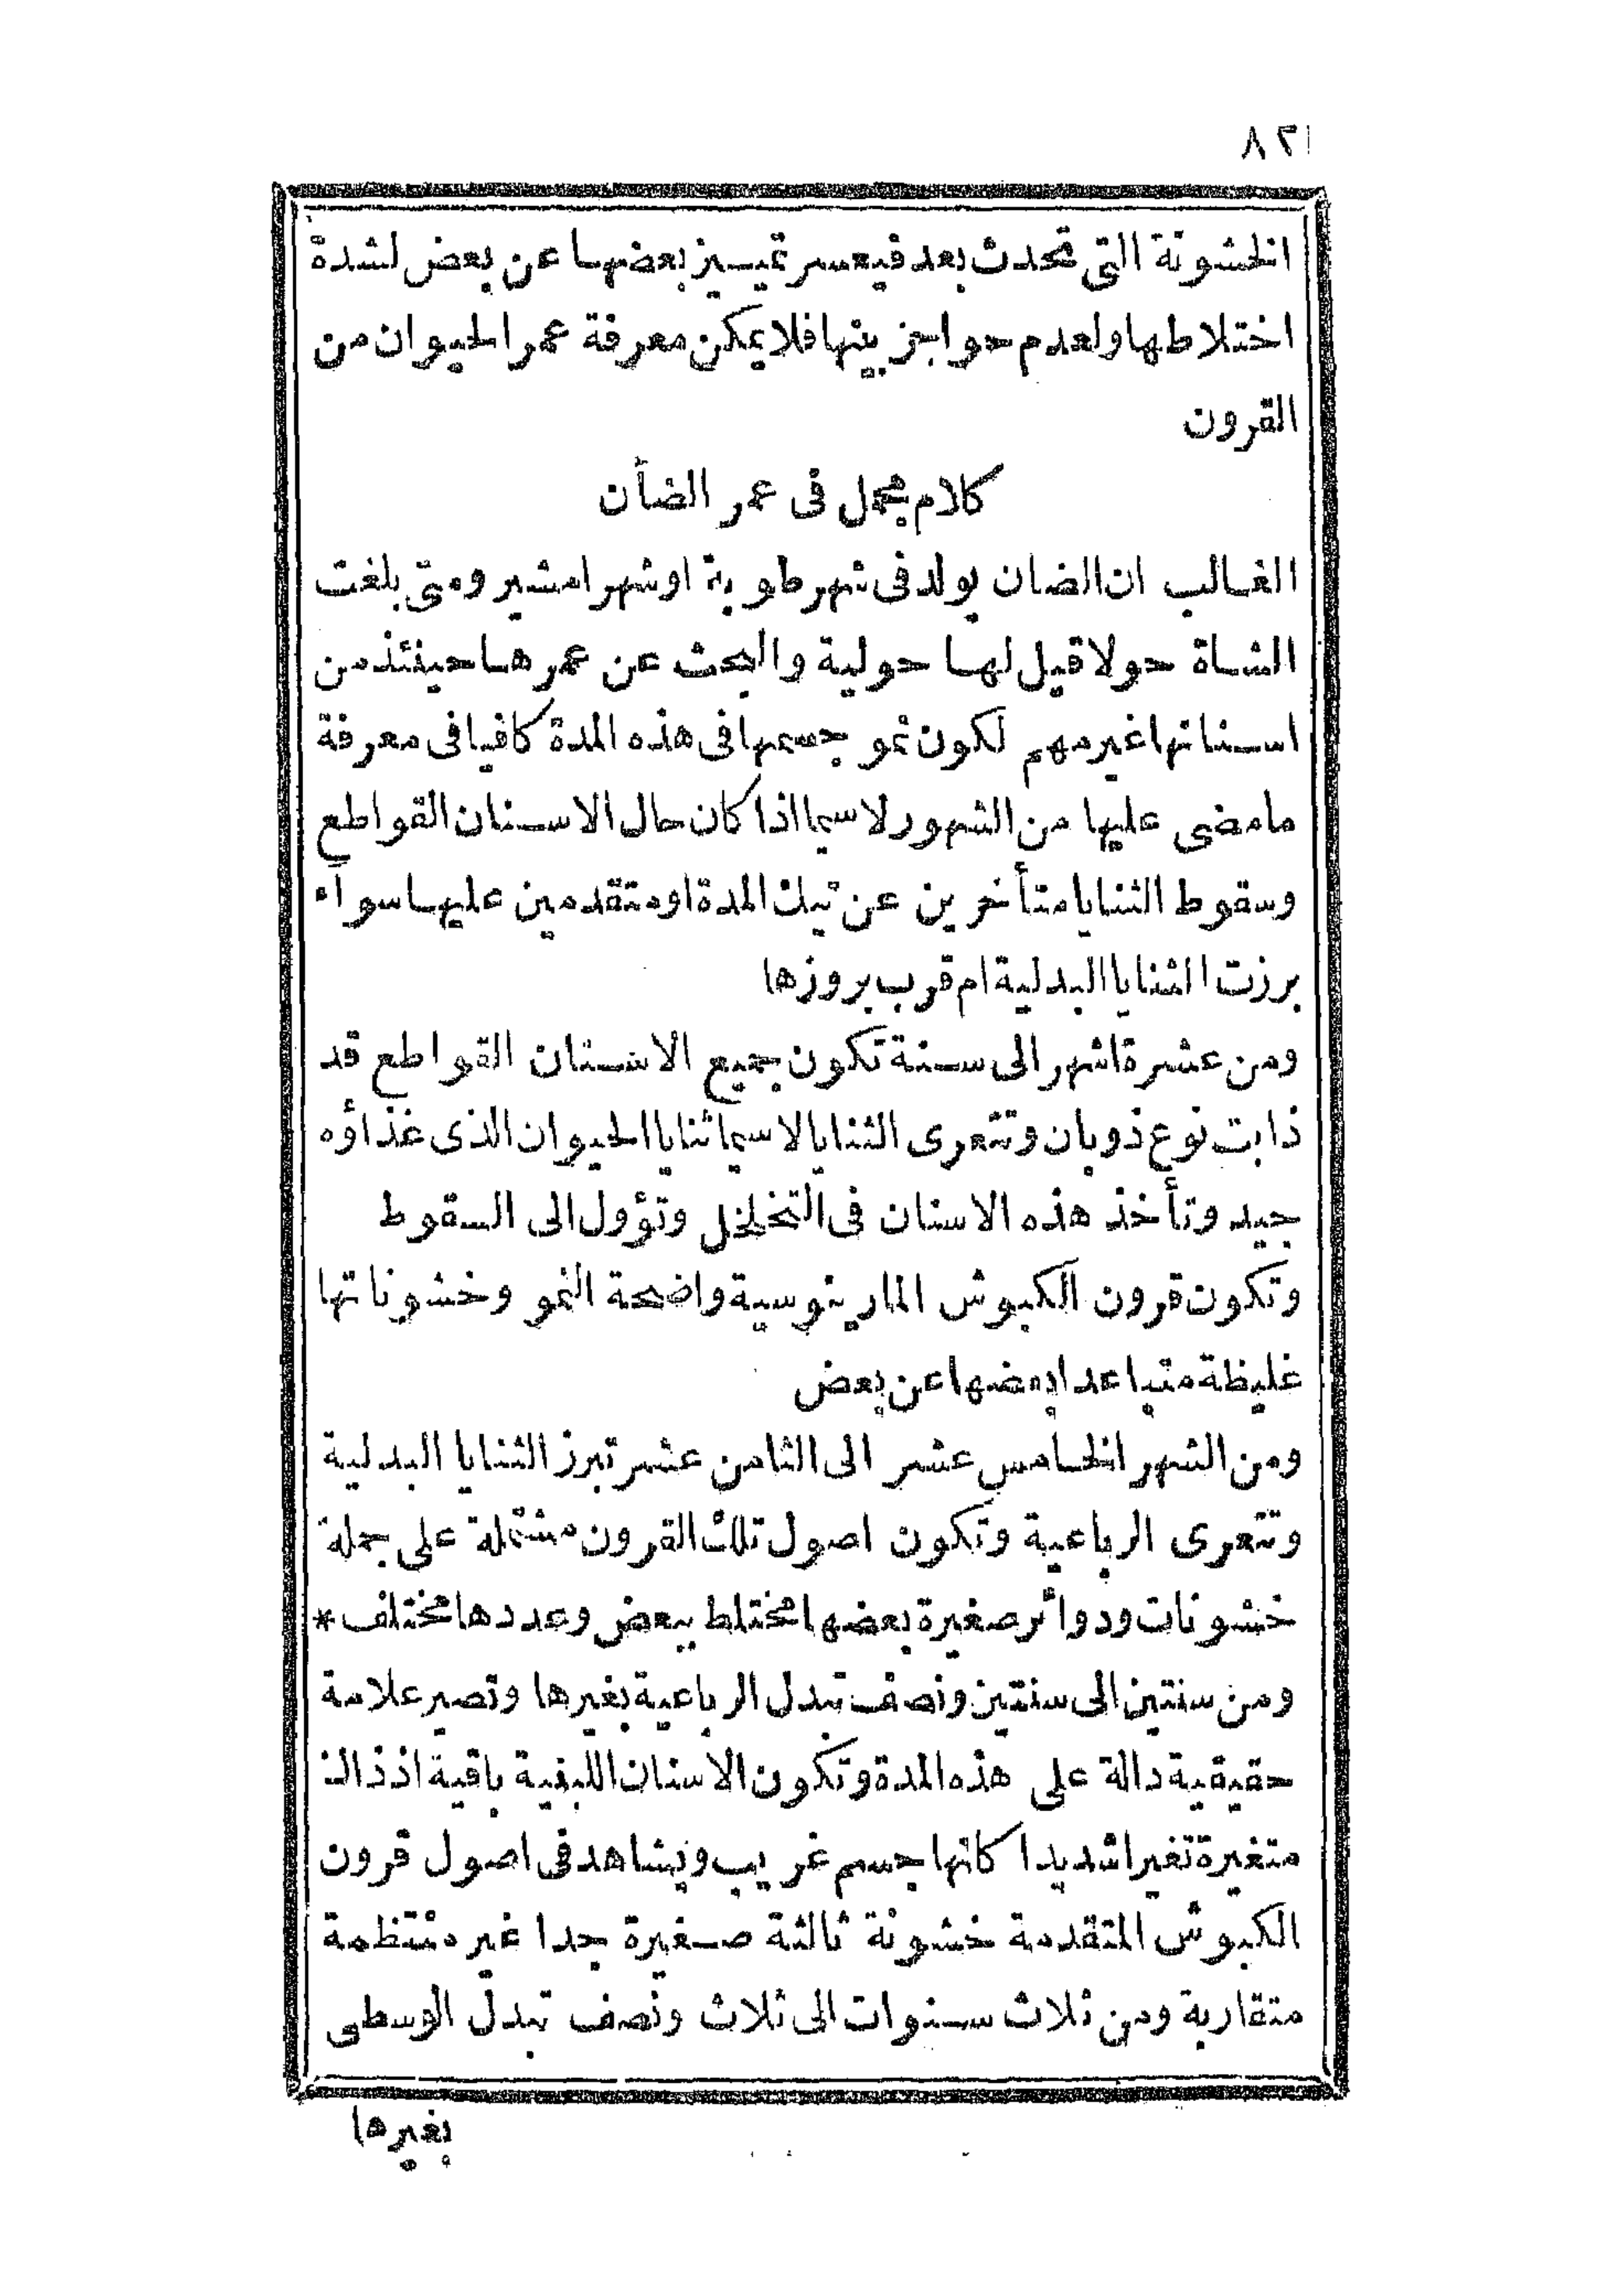 ٨٣
الخشونة التى تحدث بعد فيعسر تمييز بعضها عن بعض لشدة
اختلاطها ولعدم حواجز بينها فلا يمكن معرفة عمر الحيوان من
القرون
كلام مجمل فى عمر الضأن
الغالب ان الضان يولد فى شهر طوبة او شهر امشير ومتى بلغت
الشاة حولا قيل لها حولية والبحث عن عمرها حينئذ من
اسنانها غير مهم لكون نمو جسمها فى هذه المدة كافيا فى معرفة
ما مضى عليها من الشهور لاسيما اذا كان حال الاسنان القواطع
وسقوط الثنايا متأخرين عن تيك المدة او متقدمين عليها سوآء
برزت الثنايا البدلية ام قرب بروزها
ومن عشرة اشهر الى سنة تكون جميع الاسنان القواطع قد
ذابت نوع ذوبان وتتعرى الثنايا لاسيما ثنايا الحيوان الذى غذاؤه
جيد وتأخذ هذه الاسنان فى التخلخل وتؤول الى السقوط
وتكون قرون الكبوش المارينوسية واضحة النمو وخشوناتها
غليظة متباعدا بعضها عن بعض
ومن الشهر الخامس عشر الى الثامن عشر تبرز الثنايا البدلية
وتتعرى الرباعية وتكون اصول تلك القرون مشتملة على جملة
خشونات ودوائر صغيرة بعضها مختلط ببعض وعددها مختلف *
ومن سنتين الى سنتين ونصف تبدل الرباعية بغيرها وتصير علامة
حقيقية دالة على هذه المدة وتكون الاسنان اللبنية باقية اذ ذاك
متغيرة تغيرا شديدا كانها جسم غريب ويشاهد فى اصول قرون
الكبوش المتقدمة خشونة ثالثة صغيرة جدا غير منتظمة
متقاربة ومن ثلاث سنوات الى ثلاث ونصف تبدل الوسطى
بغيرها